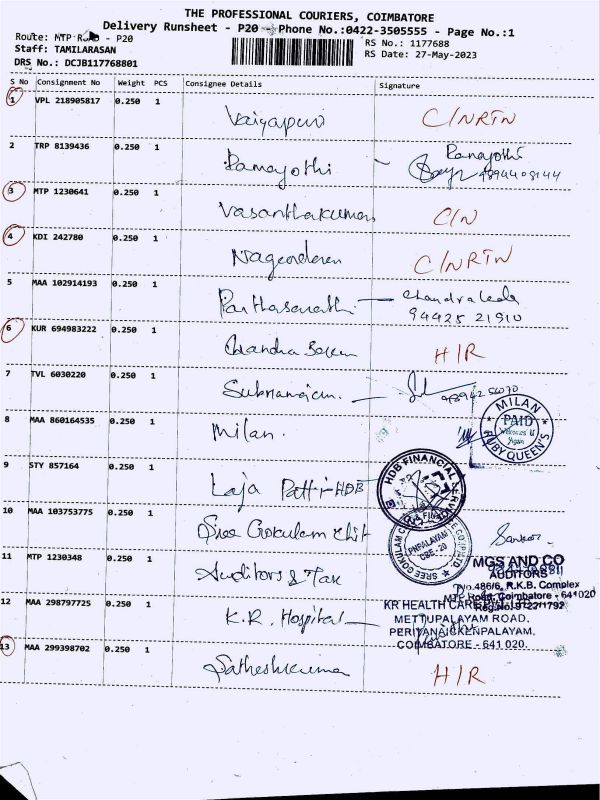 THE PROFESSIONAL COURIERS, COIMBATORE
Delivery Runsheet - P20 - Phone No.:0422-3505555 - Page No.:1
Route: MTP Road - P20
Staff: TAMILARASAN
RS No.: 1177688
RS Date: 27-May-2023
DRS No.: DCJB117768801
S No Consignment No Weight PCS Consignee Details Signature
1 VPL 218905817 0.250 1 Vaiyapuri C/NRTN
2 TRP 8139436 0.250 1 Ramajothi Ramajothi
9894408144
3 MTP 1230641 0.250 1 Vasanthakumar C/N
4 KDI 242780 0.250 1 Nagendren C/NRTN
5 MAA 102914193 0.250 1 Parthasarathi Chandraleda
94425 21910
6 KUR 694983222 0.250 1 Chandra H/R
7 TVL 6030220 0.250 1
8 MAA 860164535 0.250 1 Milan.
MILAN
PAID
Welcomes U
Again
RUBY QUEEN'S
9 STY 857164 0.250 1 Laja Patti-HDB
HDB FINANCIAL
10 MAA 103753775 0.250 1 Sree Gokulam Chit
SREE GOKULAM
PNPALAYAM
CBE - 20
Sankar
11 MTP 1230348 0.250 1 Auditors & Tax
MGS AND CO
AUDITORS
No.486/6, R.K.B. Complex
MTP Road, Coimbatore - 641 020
12 MAA 298797725 0.250 1 K.R. Hospital
KR HEALTH CARE
METTUPALAYAM ROAD,
PERIYANAICKENPALAYAM,
COIMBATORE - 641 020.
13 MAA 299398702 0.250 1 Satheshkumar H/R